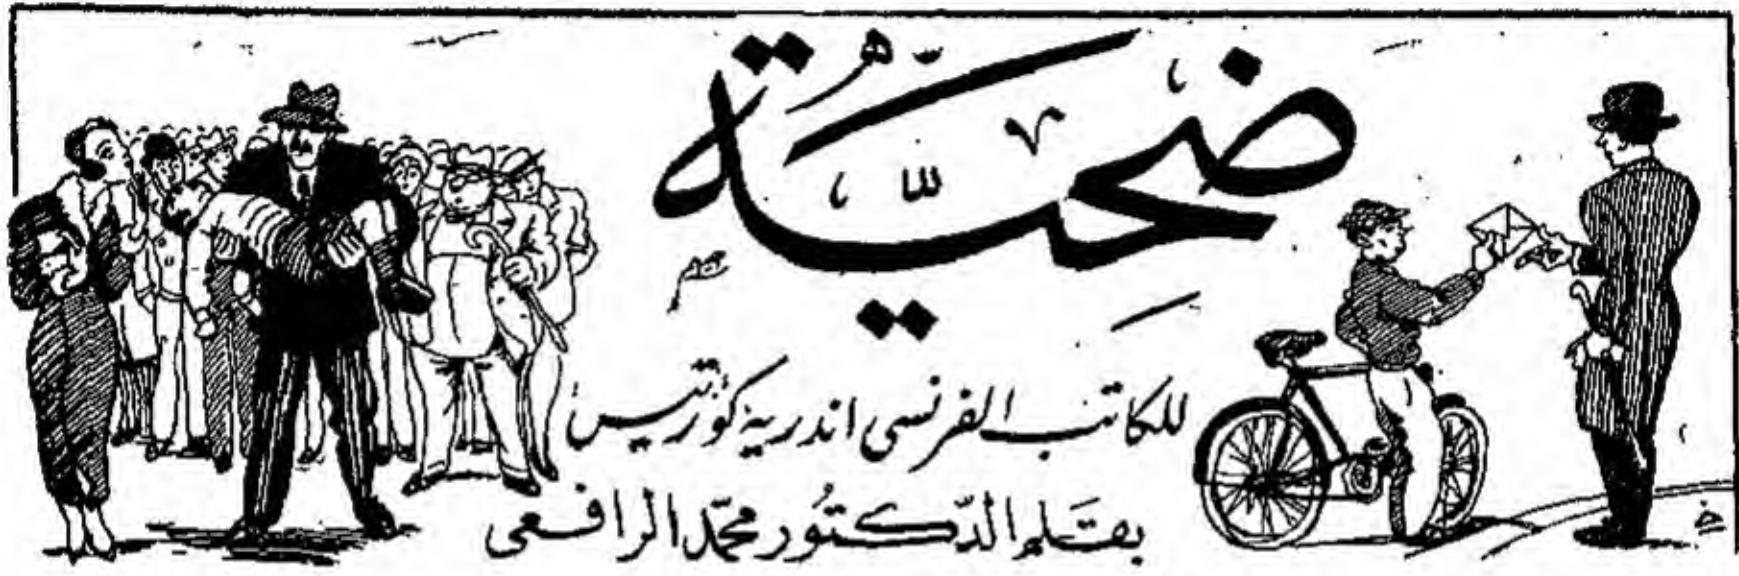 ضحيّة
للكاتب الفرنسى اندريه كورتيس
بقلم الدّكتُور محمّد الرافعى